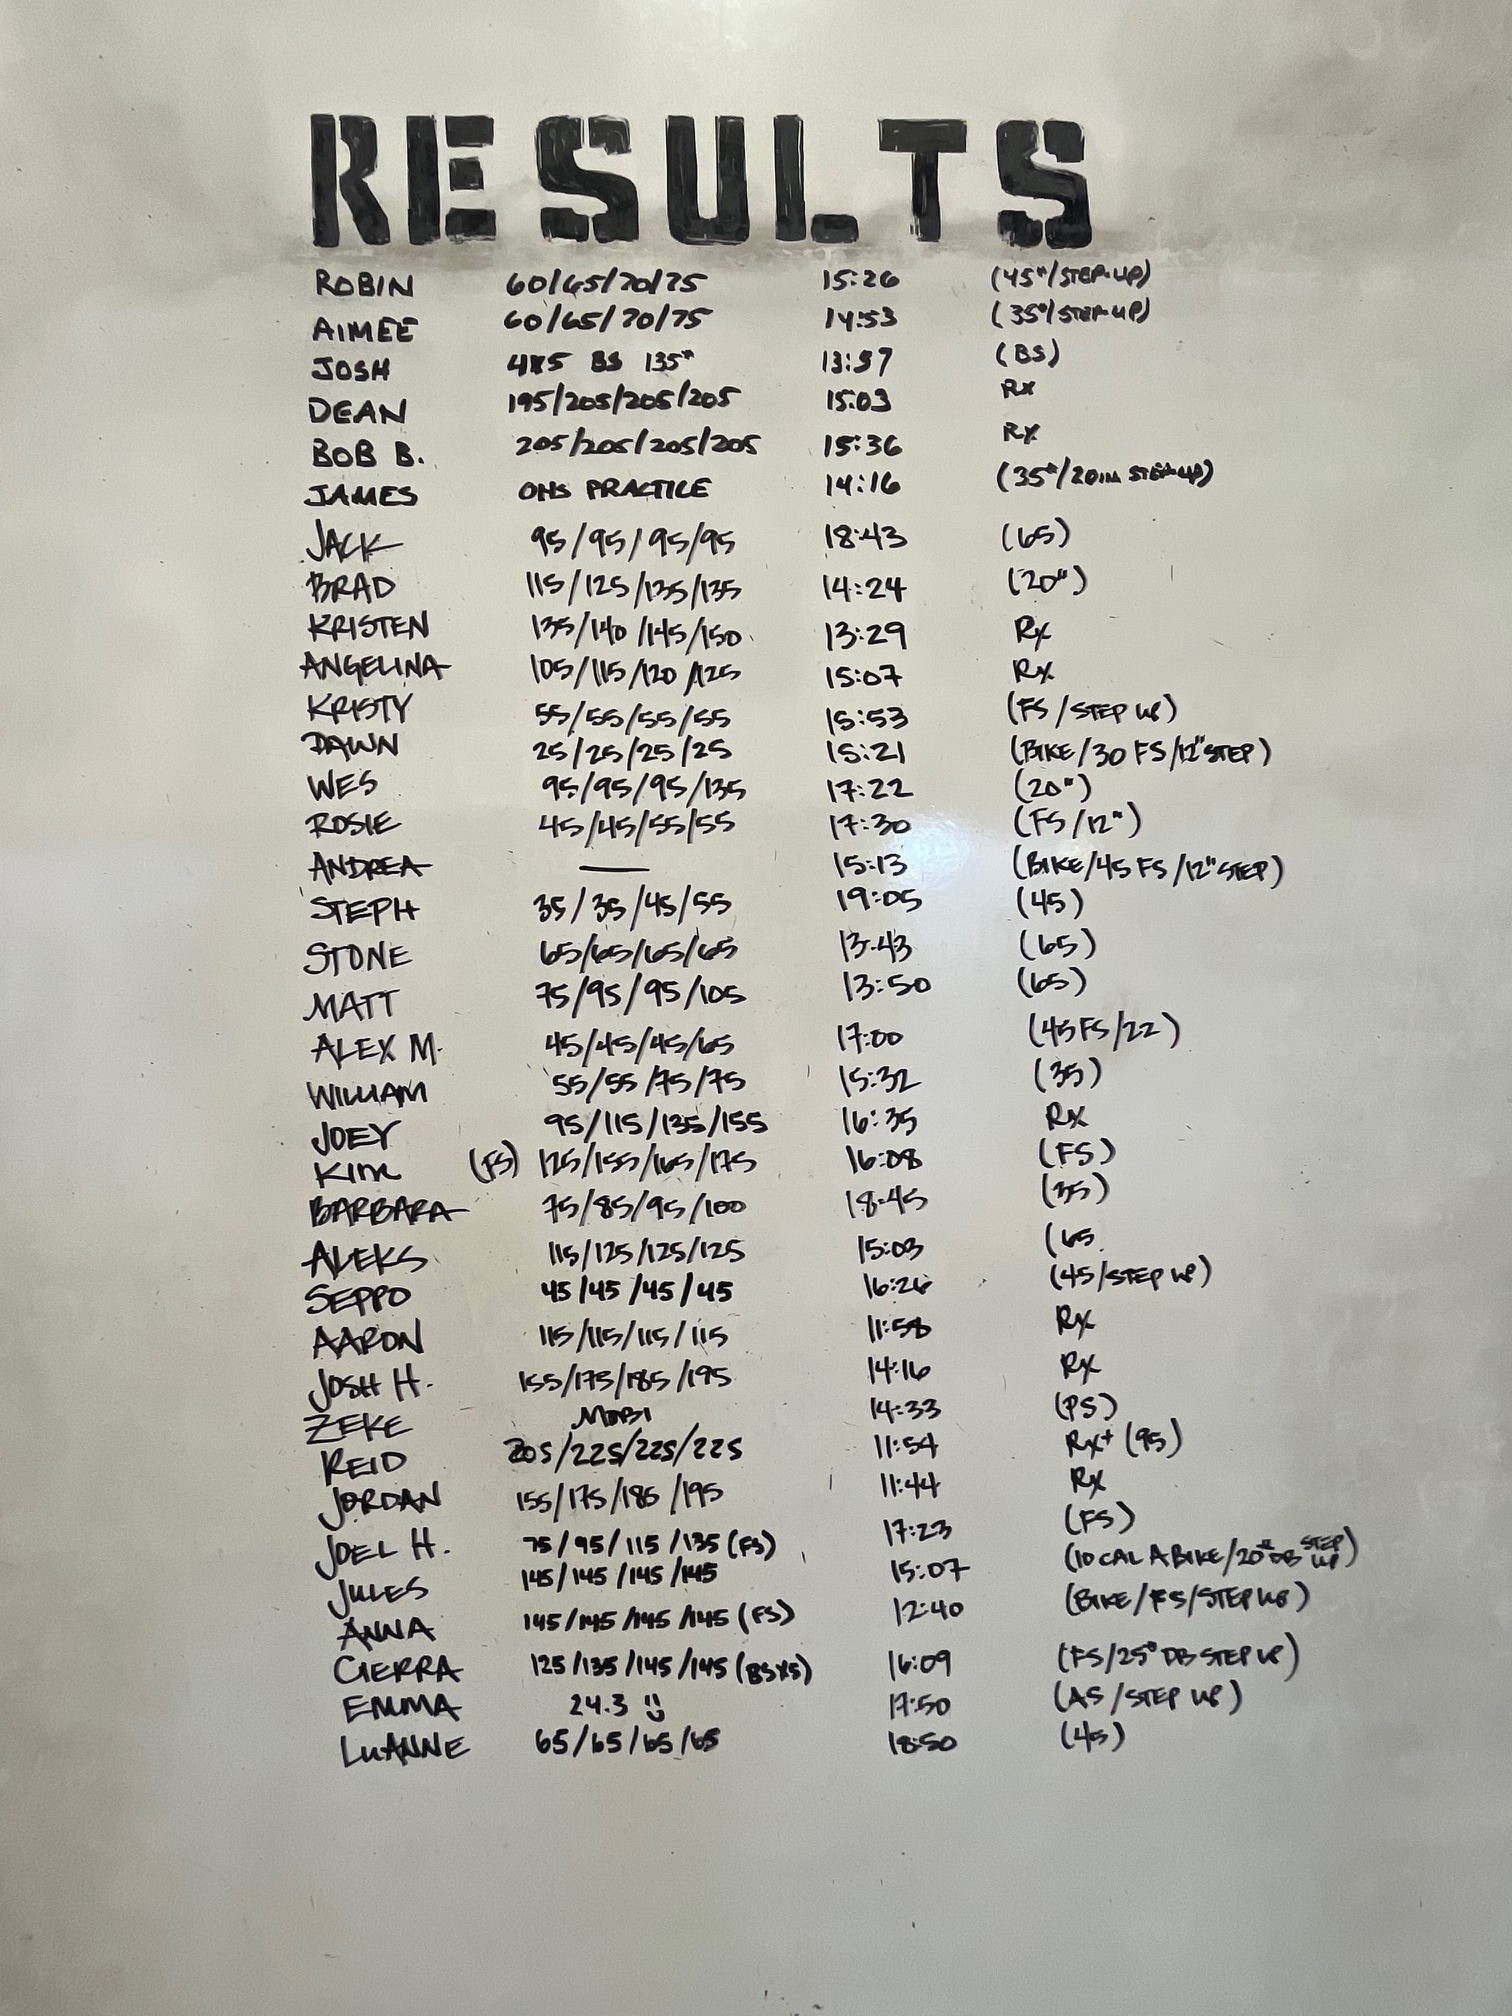 RESULTS
ROBIN 60/65/70/75 15:26 (45#/STEP-UP)
AIMEE 60/65/70/75 14:53 (35#/STEP-UP)
JOSH 4x5 BS 135# 13:37 (BS)
DEAN 195/205/205/205 15:03 Rx
BOB B. 205/205/205/205 15:36 Rx
JAMES OHS PRACTICE 14:16 (35#/20IN STEP-UP)
JACK 95/95/95/95 18:43 (65)
BRAD 115/125/135/135 14:24 (20")
KRISTEN 135/140/145/150 13:29 Rx
ANGELINA 105/115/120/125 15:07 Rx
KRISTY 55/55/55/55 15:53 (FS/STEP UP)
DAWN 25/25/25/25 15:21 (BIKE/30 FS/12" STEP)
WES 95/95/95/135 17:22 (20")
ROSIE 45/45/55/55 17:30 (FS/12")
ANDREA — 15:13 (BIKE/45 FS/12" STEP)
STEPH 35/35/45/55 19:05 (45)
STONE 65/65/65/65 13:43 (65)
MATT 75/95/95/105 13:50 (65)
ALEX M. 45/45/45/65 17:00 (45FS/22)
WILLIAM 55/55/75/75 15:32 (35)
JOEY 95/115/135/155 16:35 Rx
KIM (FS) 125/155/165/175 16:08 (FS)
BARBARA 75/85/95/100 18:45 (35)
ALEKS 115/125/125/125 15:03 (65.
SEPPO 45/45/45/45 16:26 (45/STEP UP)
AARON 115/115/115/115 11:58 Rx
JOSH H. 155/175/185/195 14:16 Rx
ZEKE MOBI 14:33 (PS)
REID 205/225/225/225 11:54 Rx+ (95)
JORDAN 155/175/185/195 11:44 Rx
JOEL H. 75/95/115/135 (FS) 17:23 (FS)
JULES 145/145/145/145 15:07 (10 CAL A BIKE/20# DB STEP UP)
ANNA 145/145/145/145 (FS) 12:40 (BIKE/FS/STEP UP)
CIERRA 125/135/145/145 (BSx5) 16:09 (FS/25# DB STEP UP)
EMMA 24.3 :) 17:50 (AS/STEP UP)
LUANNE 65/65/65/65 18:50 (45)